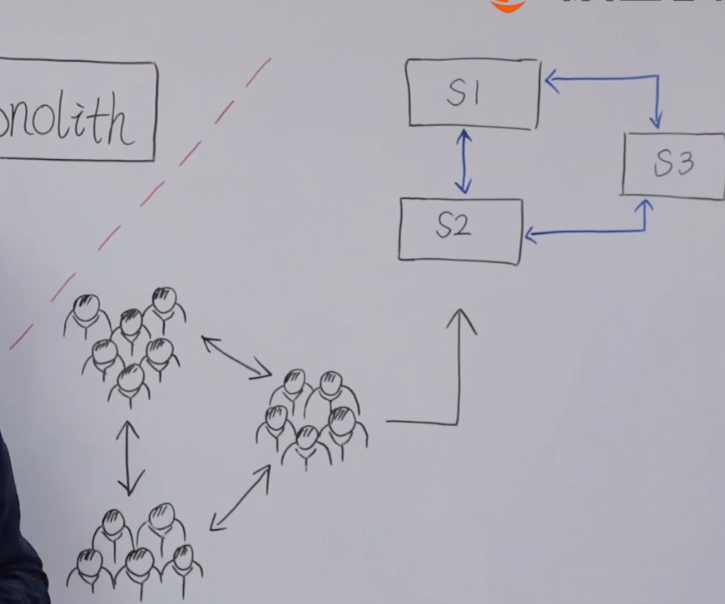 onolith
S1
S3
S2